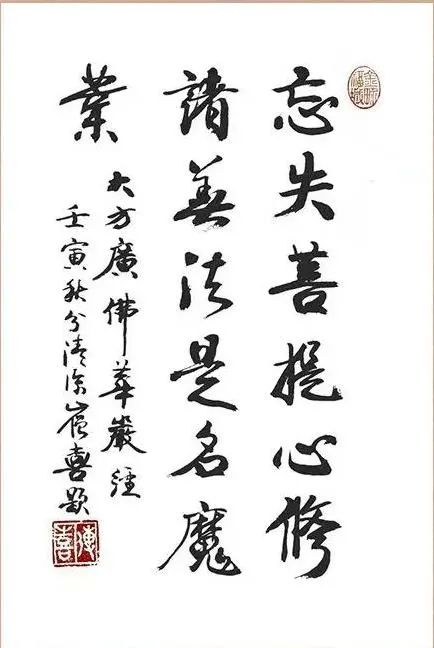 忘失菩提心修
諸善法是名魔
業
大方廣佛華嚴經
壬寅秋分清涼山傳喜題
傳喜